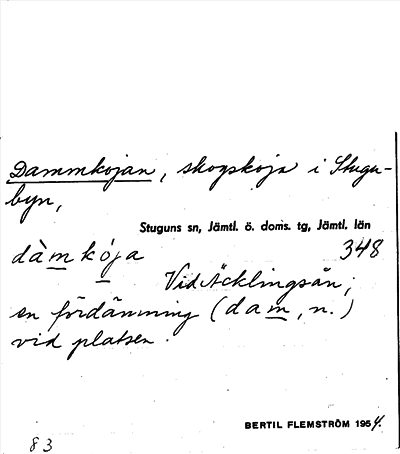 Dammkojan, skogskoja i Stugu-
byn,
Stuguns sn, Jämtl. ö. doms. tg, Jämtl. län
dàmkója 348
Vid Äcklingsån;
en fördämning (dam, n.)
vid platsen.
BERTIL FLEMSTRÖM 1954.
83